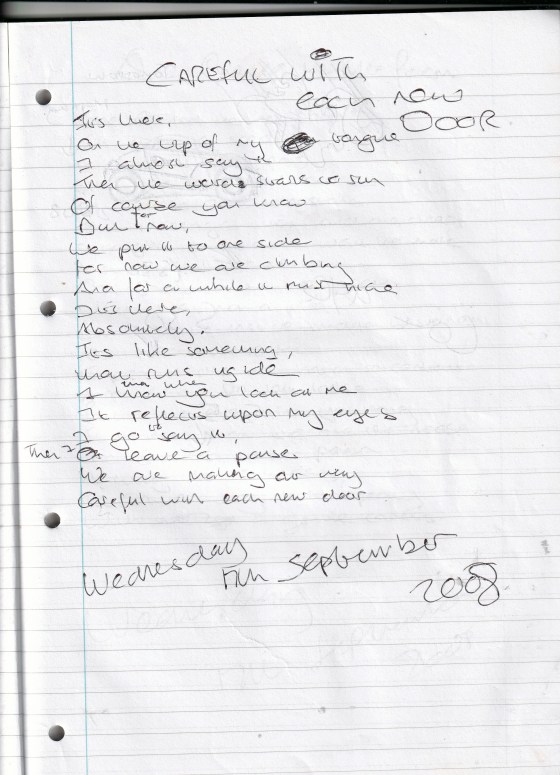 CAREFUL WITH
each new
DOOR
It's there,
On the tip of my tongue
I almost say it
Then the words starts to run
Of course you know
But for now,
We put it to one side
For now we are climbing
And for a while it must hide
It's there,
Absolutely.
It's like something,
that runs inside
I know that when you look at me
It reflects upon my eyes
I go to say it,
Then I leave a pause
We are making our way
Careful with each new door
Wednesday September
2008